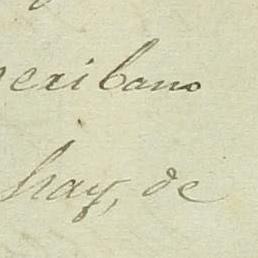 escribano
hay, de